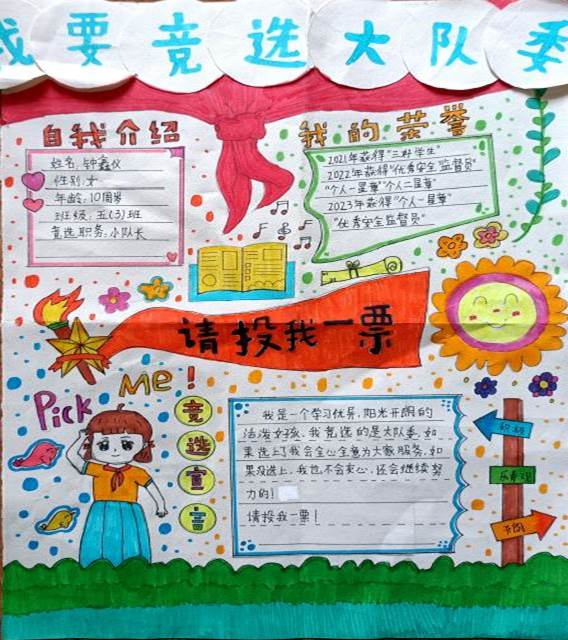 我要竞选大队委
自我介绍
姓名:钟鑫仪
性别:女
年龄:10周岁
班级:五(3)班
竞选职务:小队长
我的荣誉
2021年获得"三好学生"
2022年获得"优秀安全监督员"
"个人一星章""个人二星章"
2023年获得"个人一星章"
"优秀安全监督员"
请投我一票
Pick Me!
竞
选
宣
富
我是一个学习优异,阳光开朗的
活泼女孩,我竞选的是大队委,如
果选上了我会全心全意为大家服务,如
果没选上,我也不会灰心,还会继续努
力的!
请投我一票!